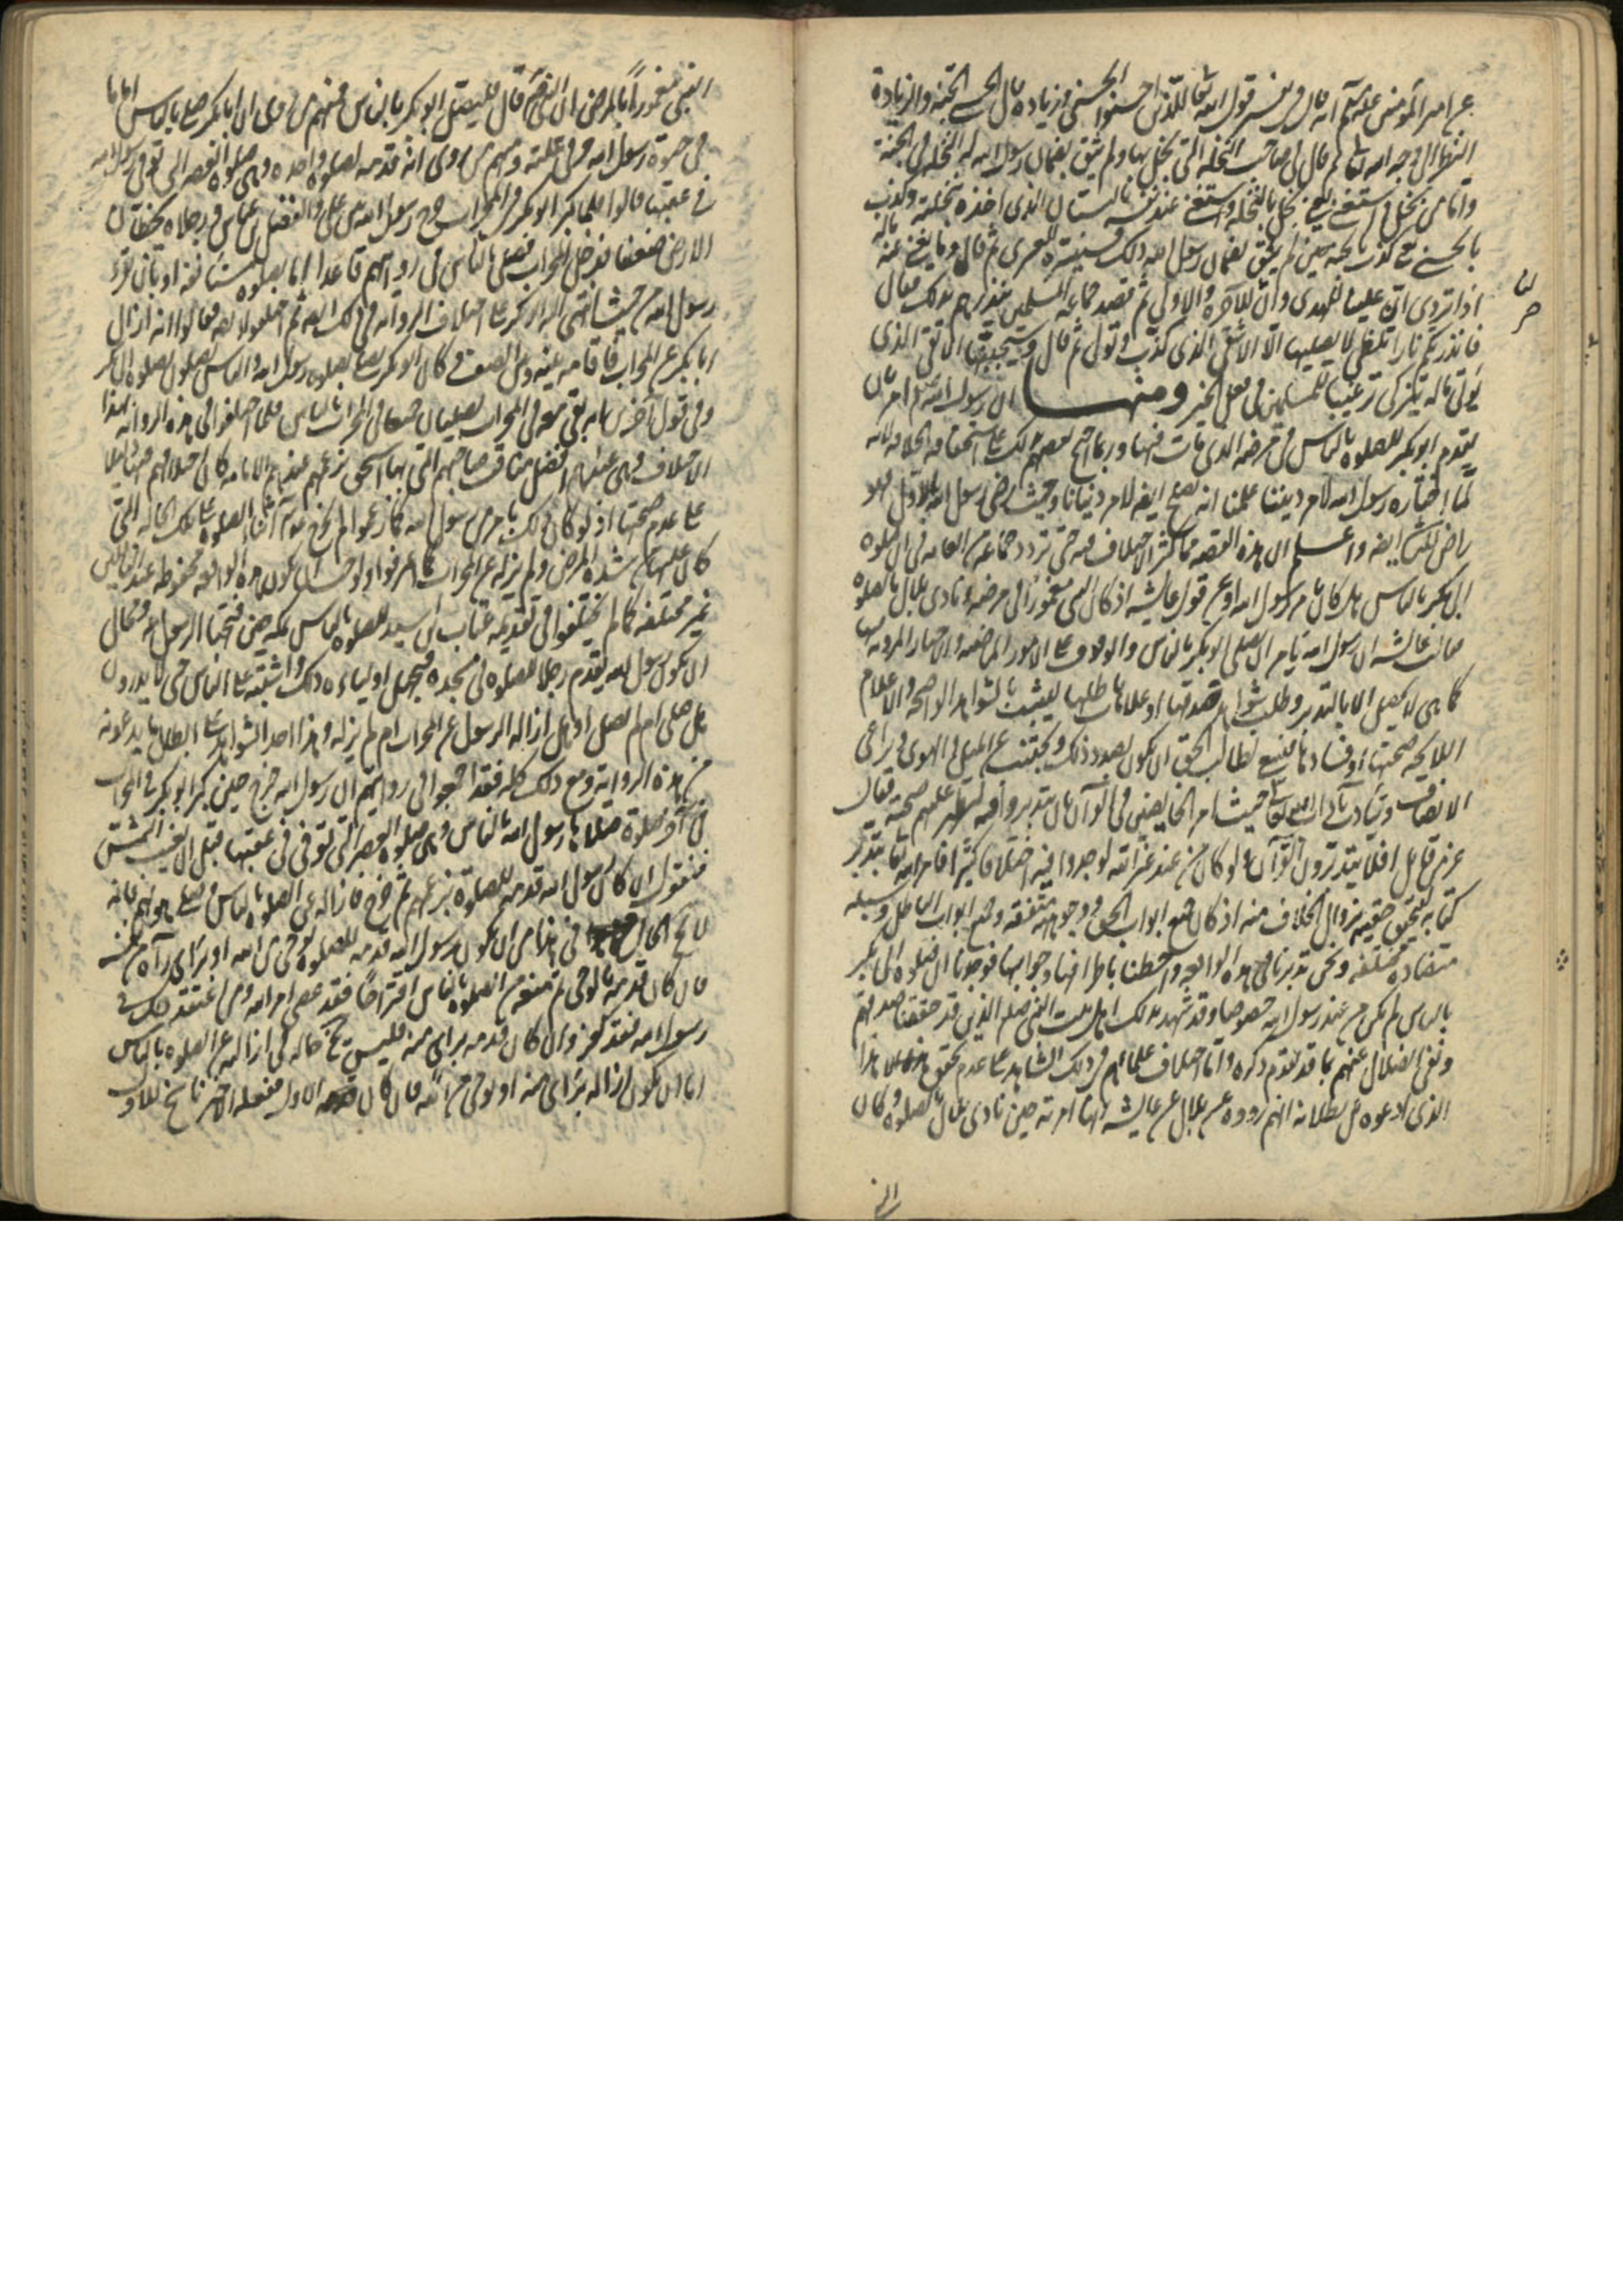 عن امير المؤمنين عليه السلم انه قال في تفسير قول الله تعالى للذين احسنوا الحسنى وزيادة قال الحسنى الجنة والزيادة
النظر الى وجه الله تعالى ثم قال في صاحب النخلة التي بخل بها ولم يثق بضمان رسول الله له النخلة في الجنة
واما من بخل واستغنى يعني بخل بالنخلة واستغنى عند نفسه بالبستان الذى اخذه بنخلته وكذب
بالحسنى يعنى كذب بالجنة حين لم يثق بضمان رسول الله ذلك فسنيسره للعسرى ثم قال وما يغنى عنه ماله
اذا تردى ان علينا للهدى وان لنا للآخرة والاولى ثم قصد جماعة المسلمين ينذرهم بذلك فقال
فانذرتكم نارا تلظى لا يصليها الا الاشقى الذى كذب وتولى ثم قال وسيجنبها الاتقى الذى
يؤتى ماله يتزكى ترغيبا للمسلمين فى فعل الخير ومنها ان رسول الله صلعم امر بان
يتقدم ابو بكر للصلوة بالناس فى مرضه الذى مات فيها وربما احتج بعضهم بذلك على استحقاقه الخلافة لانه
لما اختاره رسول الله لامر ديننا علمنا انه يصلح ايضا لامر دنيانا وحيث رضى رسول الله بالاول فهو
راض بالثانى ايضا واعلم ان هذه القصة مما كثر الاختلاف فيه حتى تردد جماعة من العامة فى ان صلوة
ابى بكر بالناس هل كان بامر رسول الله او عن قول عايشة اذ كان النبى مغمورا فى مرضه ونادى بلال بالصلوة
فقالت عائشة ان رسول الله يامر ان يصلى ابو بكر بالناس والوقوف على الامور الماضية والاخبار المروية فيها
كما هى لا يحصل الا بالتدبر وطلب شواهد صدقها او علامات بطلانها ليثبت بالشواهد الواضحة والاعلام
اللايحة صحتها او فسادها فينبغى لطالب الحق ان يكون بصدد ذلك ويجتنب عن الميل الى الهوى ويراعى
الانصاف ويتأدب بآداب الله تعالى حيث امر المخالفين فى القرآن بان يتدبروا فيه ليظهر عليهم صحته فقال
عز من قائل افلا يتدبرون القرآن ولو كان من عند غير الله لوجدوا فيه اختلافا كثيرا فامر الله تعالى بتدبر
كتابه لتحقق حقيته بزوال الخلاف منه اذ كان جميع ابواب الحق ووجوهه متفقة وجميع ابواب الباطل وسبله
متضادة مختلفة ونحن تدبرنا فى هذه الواقعة واحطنا باطرافها وجوانبها فوجدنا ان صلوة ابى بكر
بالناس لم تكن من عند رسول الله خصوصا وقد شهد بذلك اهل بيت النبى صلعم الذين قد حققنا صدقهم
ونفى الضلال عنهم بما قد تقدم ذكره واما اختلاف علمائهم فى ذلك الشاهد على عدم تحقق هذا
الذى ادعوه من بطلانه انهم رووه عن بلال عن عايشة انها امرته حين نادى بلال بالصلوة وكان
النبى مغمورا بالمرض الى النبى صلعم قال فليصل ابو بكر بالناس فمنهم من روى ان ابا بكر صلى بالناس اياما
فى حيوة رسول الله وفى علته ومنهم من روى انه قدمه لصلوة واحدة وهى صلوة العصر التى توفى رسول الله
فى عقبها قالوا فلما كبر ابو بكر فى المحراب خرج رسول الله بين على والفضل بن عباس ورجلاه يخطان
الارض ضعفا فدخل المحراب فصلى بالناس فى روايتهم قاعدا اما بصلوة مستأنفة او بانى قراءة
رسول الله من حيث انتهى اليه ابو بكر على اختلاف الرواية فى ذلك ايضا ثم اختلفوا ايضا فقالوا انه ازال
ابا بكر عن المحراب فاقامه بينه وبين الصف وكان ابو بكر يصلى بصلوة رسول الله والناس يصلون بصلوة ابى بكر
وفى قول آخر انه بقى معه فى المحراب يصليان جميعا فى المحراب بالناس فلما اختلفوا فى هذه الرواية هذا
الاختلاف وهى عندهم افضل مناقب صاحبهم التى بها استحق بزعمهم عندهم الامامة كان اختلافهم فيها دليلا
على عدم صحتها اذ لو كان ذلك بامر من رسول الله كما زعموا لم يخرج هو فى اثناء الصلوة على تلك الحالة التى
كان عليها من شدة المرض ولم يزله عن المحراب كما اعترفوا ولوجب ان يكون هذه الواقعة محفوظة عند الناس
غير مختلفة كما لم يختلفوا فى تقديمه عتاب بن اسيد للصلوة بالناس بمكة حين فتحها الرسول ومحال
ان يكون رسول الله يقدم رجلا للصلوة فى مسجده فيجهل اولياءه ذلك واشتبه على الناس حتى لا يدرون
هل صلى ام لم يصل او هل ازاله الرسول عن المحراب ام لم يزله وهذا احد الشواهد على ابطال ما يدعونه
من هذه الرواية ومع ذلك كله فقد اجمعوا فى روايتهم ان رسول الله خرج حين كبر ابو بكر فى المحراب
فى آخر صلوة صلاها رسول الله بالناس وهى صلوة العصر التى توفى فى عقبها قبل ان تغيب الشمس
فنقول ان كان رسول الله قدمه للصلوة بزعمهم ثم خرج فازاله عن الصلوة بالناس وصلى هو بهم فانه
لا يخ الحال فى هذا من ان يكون رسول الله قدمه للصلوة بوحى من الله او برأى رآه من نفسه
فان كان قدمه بالوحى ثم منعه من الصلوة بالناس اقتراحا فقد عصى امر الله ومن اعتقد ذلك فى
رسول الله فقد كفر وان كان قدمه برأى منه فليس يخ حاله فى ازالته عن الصلوة بالناس
اما ان يكون ازاله برأى منه او بوحى من الله فان كان الاول ففعله الاخير ناسخ للاول